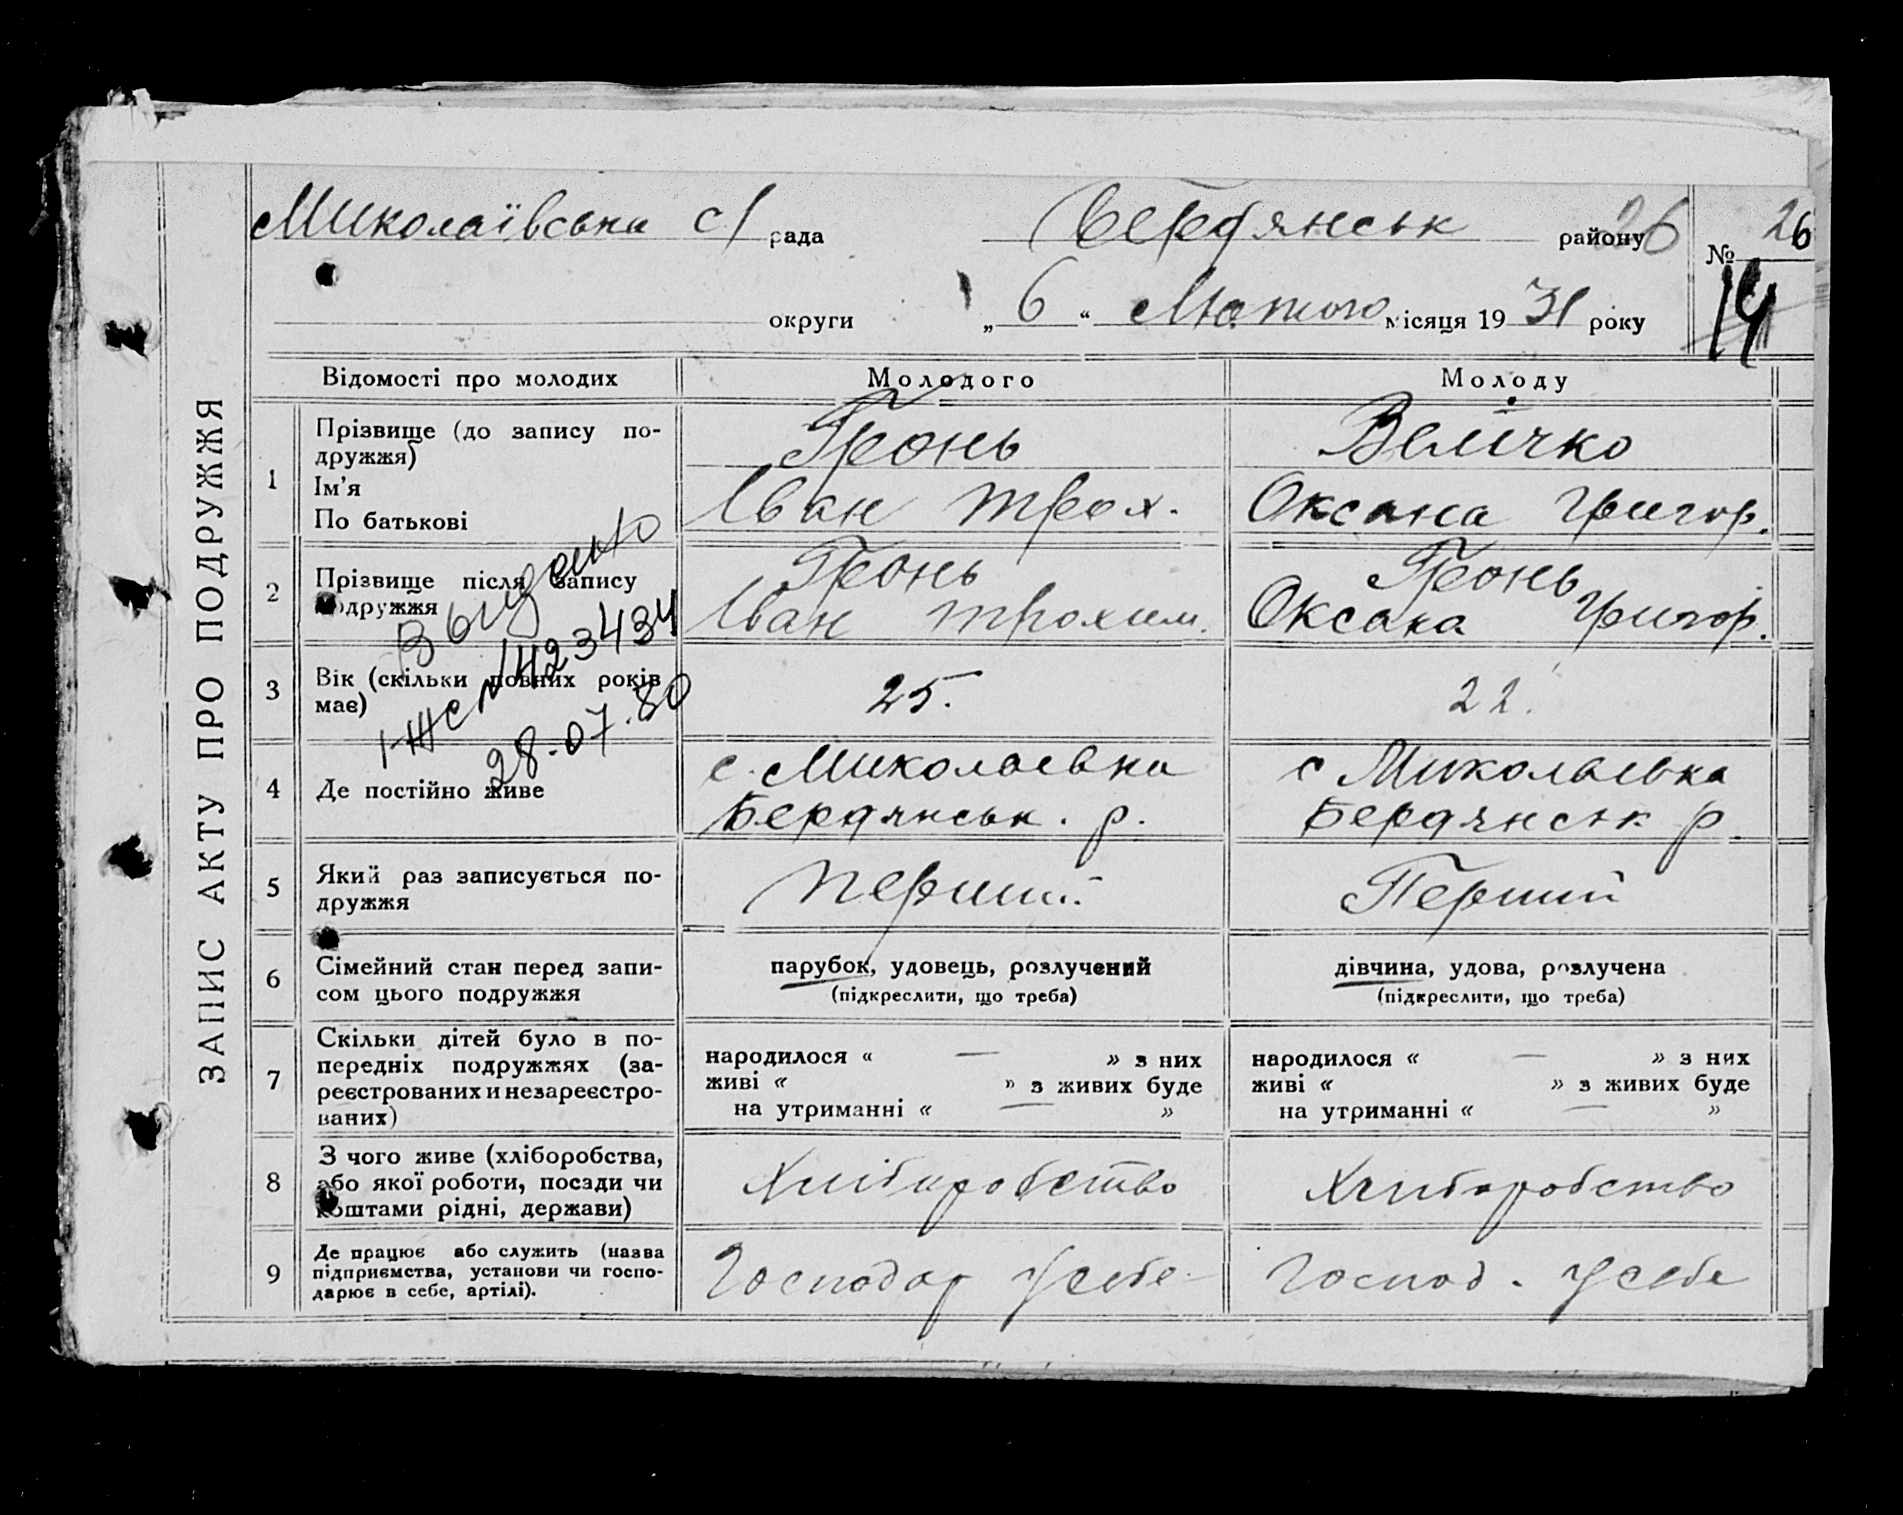 ЗАПИС АКТУ ПРО ПОДРУЖЖЯ
Миколаївська с/рада Бердянськ району 26
№ 26
14
округи „6“ Лютого місяця 1931 року
Відомості про молодих Молодого Молоду
1 Прізвище (до запису по-
дружжя)
Ім’я
По батькові
Гронь
Іван Трох.
Велічко
Оксана Григор.
2 Прізвище після запису
подружжя
Гронь
Іван Трохим.
Гронь
Оксана Григор.
Выдано
І-ЖС № 423434
28.07.80
3 Вік (скільки повних років
має)
25.
22.
4 Де постійно живе
с. Миколаевка
Бердянськ. р.
с Миколаевка
Бердянськ р
5 Який раз записується по-
дружжя
перший
Перший
6 Сімейний стан перед запи-
сом цього подружжя
парубок, удовець, розлучений
(підкреслити, що треба)
дівчина, удова, розлучена
(підкреслити, що треба)
7 Скільки дітей було в по-
передніх подружжях (за-
реєстрованих и незареєстро-
ваних)
народилося « — » з них
живі « » з живих буде
на утриманні « — »
народилося « — » з них
живі « » з живих буде
на утриманні « — »
8 З чого живе (хліборобства,
або якої роботи, посади чи
коштами рідні, держави)
Хлиборобство
Хлиборобство
9 Де працює або служить (назва
підприємства, установи чи госпо-
дарює в себе, артілі).
Господар у себе
Господ. у себе